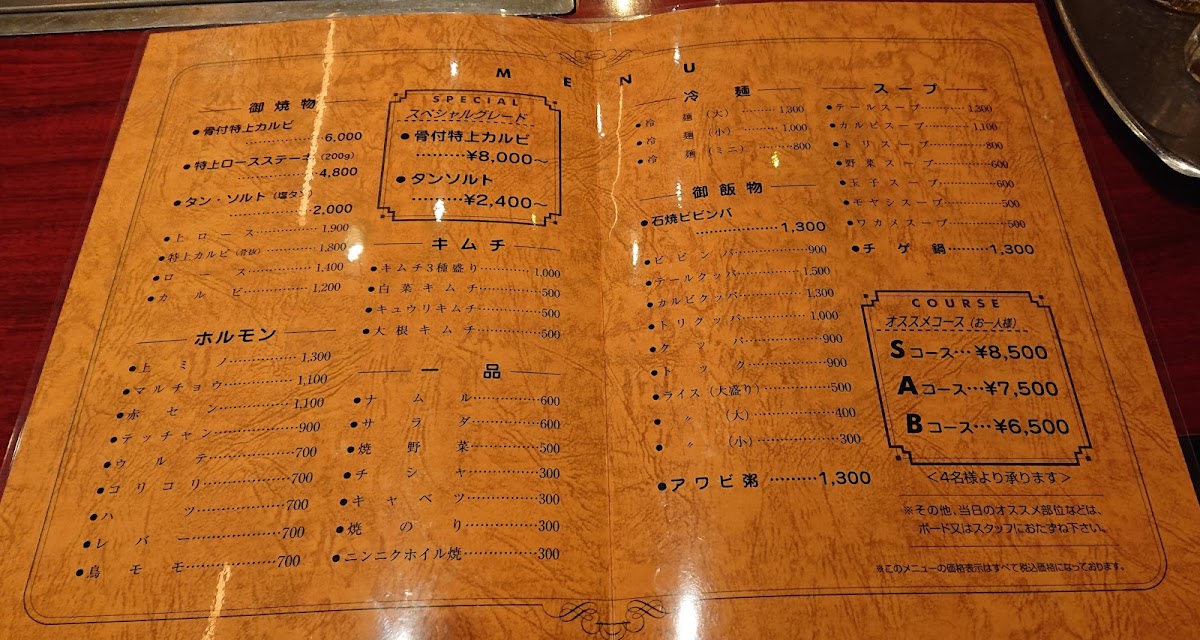 MENU
御焼物
●骨付特上カルビ
…………6,000
●特上ロースステーキ(200g)
…………4,800
●タン・ソルト(塩タン)
…………2,000
●上ロース…………1,900
●特上カルビ(骨抜)…………1,800
●ロース…………1,400
●カルビ…………1,200
ホルモン
●上ミノ…………1,300
●マルチョウ…………1,100
●赤セン…………1,100
●テッチャン…………900
●ウルテ…………700
●コリコリ…………700
●ハツ…………700
●レバー…………700
●鳥モモ…………700
SPECIAL
スペシャルグレード
●骨付特上カルビ
………¥8,000~
●タンソルト
………¥2,400~
キムチ
●キムチ3種盛り…………1,000
●白菜キムチ…………500
●キュウリキムチ…………500
●大根キムチ…………500
一品
●ナムル…………600
●サラダ…………600
●焼野菜…………500
●チシャ…………300
●キャベツ…………300
●焼のり…………300
●ニンニクホイル焼…………300
冷麺
●冷麺(大)…………1,300
●冷麺(小)…………1,000
●冷麺(ミニ)…………800
御飯物
●石焼ビビンバ
…………1,300
●ビビンバ…………900
●テールクッパ…………1,500
●カルビクッパ…………1,300
●トリクッパ…………1,000
●クッパ…………900
●トック…………900
●ライス(大盛り)…………500
●〃(大)…………400
●〃(小)…………300
●アワビ粥………1,300
スープ
●テールスープ…………1,300
●カルビスープ…………1,100
●トリスープ…………800
●野菜スープ…………600
●玉子スープ…………600
●モヤシスープ…………500
●ワカメスープ…………500
●チゲ鍋………1,300
COURSE
オススメコース(お一人様)
Sコース…¥8,500
Aコース…¥7,500
Bコース…¥6,500
<4名様より承ります>
※その他、当日のオススメ部位などは、
ボード又はスタッフにおたずね下さい。
※このメニューの価格表示はすべて税込価格になっております。